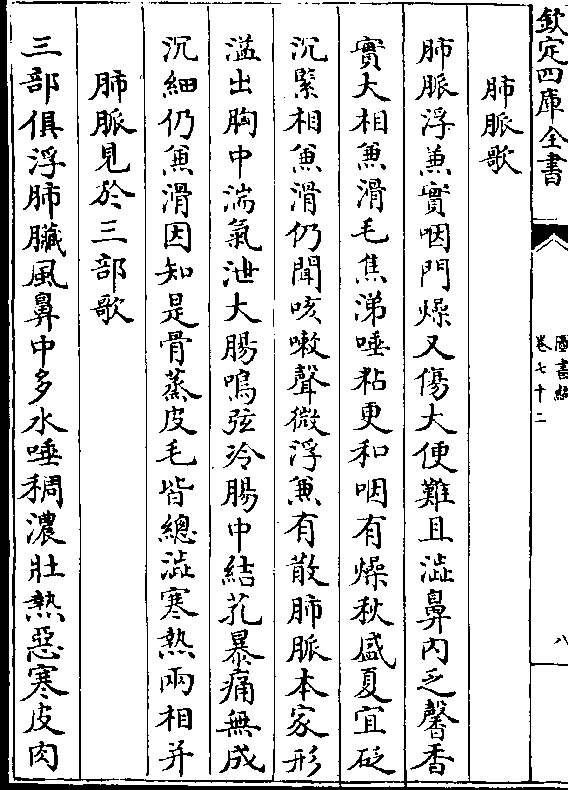 欽定四庫全書
圖書編
卷七十二
八
肺脈歌
肺脈浮兼實咽門燥又傷大便難且澁鼻内乏馨香
實大相兼滑毛焦涕唾粘更和咽有燥秋盛夏宜砭
沉緊相兼滑仍聞咳嗽聲微浮兼有散肺脈本家形
溢出胸中滿氣泄大腸鳴弦冷腸中結芤暴痛無成
沉細仍兼滑因知是骨蒸皮毛皆總澁寒熱兩相并
肺脈見於三部歌
三部俱浮肺臟風鼻中多水唾稠濃壯熱惡寒皮肉